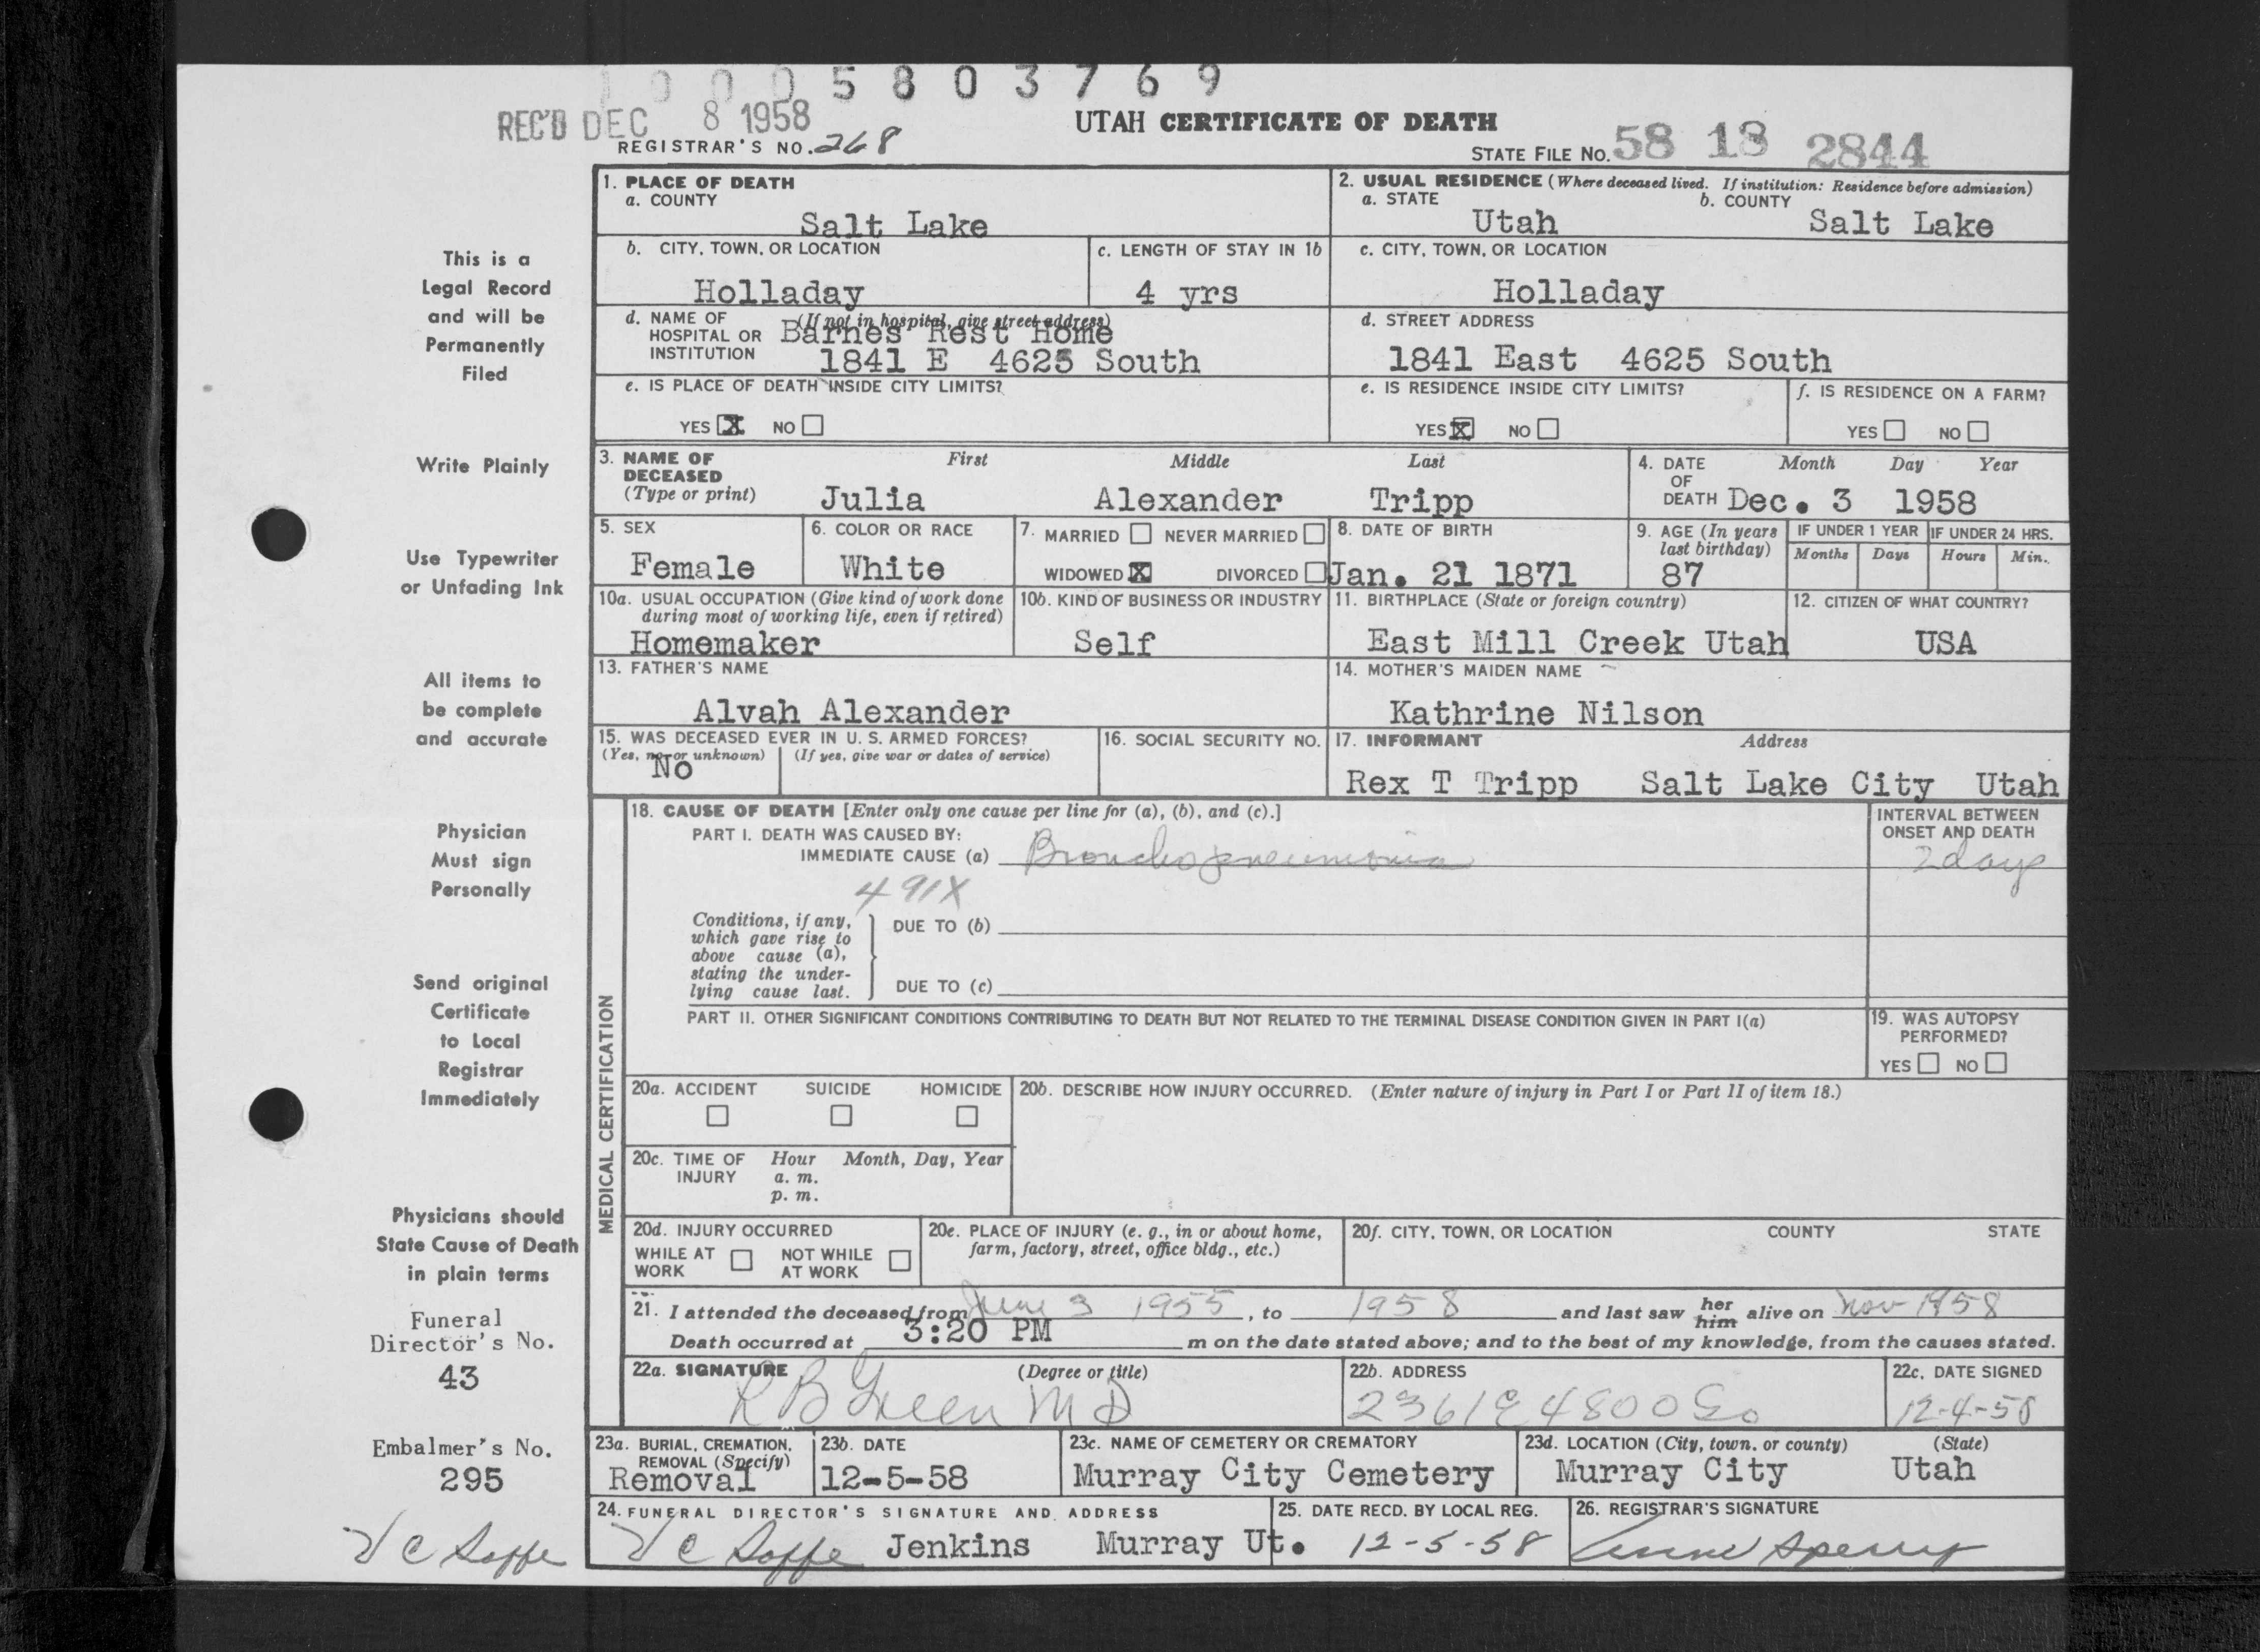 1 0 0 0 5 8 0 3 7 6 9
REC'D DEC 8 1958
UTAH CERTIFICATE OF DEATH
REGISTRAR'S NO. 268
STATE FILE No. 58 18 2844
This is a
Legal Record
and will be
Permanently
Filed
Write Plainly
Use Typewriter
or Unfading Ink
All items to
be complete
and accurate
Physician
Must sign
Personally
Send original
Certificate
to Local
Registrar
Immediately
Physicians should
State Cause of Death
in plain terms
Funeral
Director's No.
43
Embalmer's No.
295
V C Soffe
1. PLACE OF DEATH
a. COUNTY
Salt Lake
2. USUAL RESIDENCE (Where deceased lived. If institution: Residence before admission)
a. STATE b. COUNTY
Utah Salt Lake
b. CITY, TOWN, OR LOCATION
Holladay
c. LENGTH OF STAY IN 1b
4 yrs
c. CITY, TOWN, OR LOCATION
Holladay
d. NAME OF (If not in hospital, give street address)
HOSPITAL OR Barnes Rest Home
INSTITUTION 1841 E 4625 South
d. STREET ADDRESS
1841 East 4625 South
e. IS PLACE OF DEATH INSIDE CITY LIMITS?
YES X NO
e. IS RESIDENCE INSIDE CITY LIMITS?
YES X NO
f. IS RESIDENCE ON A FARM?
YES NO
3. NAME OF First Middle Last
DECEASED
(Type or print) Julia Alexander Tripp
4. DATE Month Day Year
OF
DEATH Dec. 3 1958
5. SEX
Female
6. COLOR OR RACE
White
7. MARRIED NEVER MARRIED
WIDOWED X DIVORCED
8. DATE OF BIRTH
Jan. 21 1871
9. AGE (In years
last birthday)
87
IF UNDER 1 YEAR
Months Days
IF UNDER 24 HRS.
Hours Min.
10a. USUAL OCCUPATION (Give kind of work done
during most of working life, even if retired)
Homemaker
10b. KIND OF BUSINESS OR INDUSTRY
Self
11. BIRTHPLACE (State or foreign country)
East Mill Creek Utah
12. CITIZEN OF WHAT COUNTRY?
USA
13. FATHER'S NAME
Alvah Alexander
14. MOTHER'S MAIDEN NAME
Kathrine Nilson
15. WAS DECEASED EVER IN U. S. ARMED FORCES?
(Yes, no, or unknown) (If yes, give war or dates of service)
No
16. SOCIAL SECURITY NO.
17. INFORMANT Address
Rex T Tripp Salt Lake City Utah
MEDICAL CERTIFICATION
18. CAUSE OF DEATH [Enter only one cause per line for (a), (b), and (c).]
PART I. DEATH WAS CAUSED BY:
IMMEDIATE CAUSE (a) Bronchopneumonia
INTERVAL BETWEEN
ONSET AND DEATH
2 days
491X
Conditions, if any,
which gave rise to
above cause (a),
stating the under-
lying cause last.
DUE TO (b)
DUE TO (c)
PART II. OTHER SIGNIFICANT CONDITIONS CONTRIBUTING TO DEATH BUT NOT RELATED TO THE TERMINAL DISEASE CONDITION GIVEN IN PART I(a)
19. WAS AUTOPSY
PERFORMED?
YES NO
20a. ACCIDENT SUICIDE HOMICIDE
20b. DESCRIBE HOW INJURY OCCURRED. (Enter nature of injury in Part I or Part II of item 18.)
20c. TIME OF Hour Month, Day, Year
INJURY a. m.
p. m.
20d. INJURY OCCURRED
WHILE AT NOT WHILE
WORK AT WORK
20e. PLACE OF INJURY (e. g., in or about home,
farm, factory, street, office bldg., etc.)
20f. CITY, TOWN, OR LOCATION COUNTY STATE
21. I attended the deceased from June 3 1955, to 1958 and last saw her him alive on Nov 1958
Death occurred at 3:20 PM m on the date stated above; and to the best of my knowledge, from the causes stated.
22a. SIGNATURE (Degree or title)
R B Green M D
22b. ADDRESS
2361 E 4800 So
22c. DATE SIGNED
12-4-58
23a. BURIAL, CREMATION,
REMOVAL (Specify)
Removal
23b. DATE
12-5-58
23c. NAME OF CEMETERY OR CREMATORY
Murray City Cemetery
23d. LOCATION (City, town, or county) (State)
Murray City Utah
24. FUNERAL DIRECTOR'S SIGNATURE AND ADDRESS
V C Soffe Jenkins Murray Ut.
25. DATE RECD. BY LOCAL REG.
12-5-58
26. REGISTRAR'S SIGNATURE
Anne Sperry